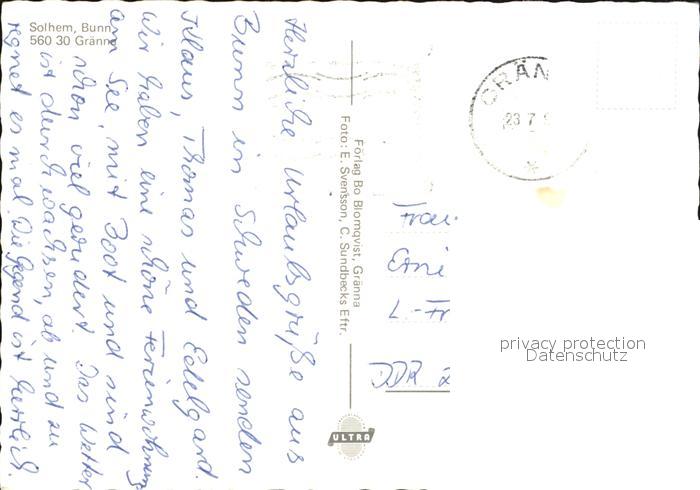 Solhem, Bunn
560 30 Gränna
Herzliche Urlaubsgrüße aus
Bunn in Schweden senden
Klaus, Thomas und Edelgard.
Wir haben eine schöne Ferienwohnung
am See, mit Boot und sind
schon viel gerudert. Das Wetter
ist durchwachsen, ab und zu
regnet es mal. Die Gegend ist herrlich.
Förlag Bo Blomqvist, Gränna
Foto: E. Svensson, C. Sundbecks Eftr.
ULTRA
GRÄN
23 7
Frau
L.-Fr
DDR
privacy protection
Datenschutz